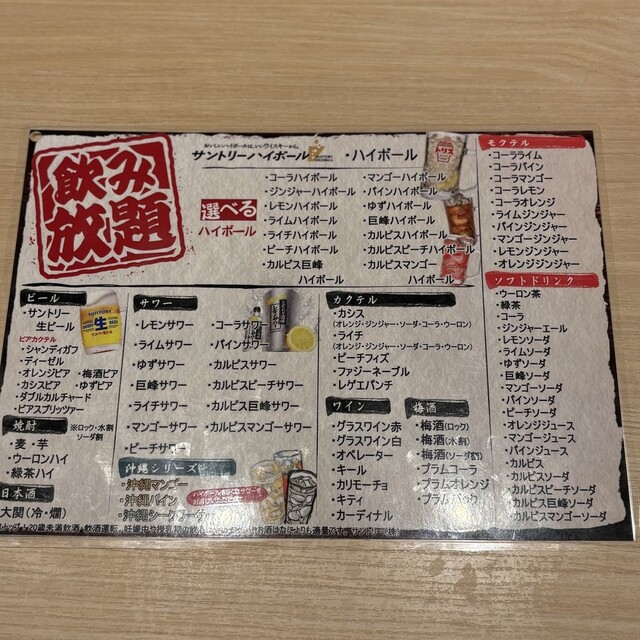 飲み
放題
サントリーハイボール
・ハイボール
選べる
ハイボール
・コーラハイボール
・ジンジャーハイボール
・レモンハイボール
・ライムハイボール
・ライチハイボール
・ピーチハイボール
・カルピス巨峰
ハイボール
・マンゴーハイボール
・パインハイボール
・ゆずハイボール
・巨峰ハイボール
・カルピスハイボール
・カルピスピーチハイボール
・カルピスマンゴー
ハイボール
トリス
モクテル
・コーラライム
・コーラパイン
・コーラマンゴー
・コーラレモン
・コーラオレンジ
・ライムジンジャー
・パインジンジャー
・マンゴージンジャー
・レモンジンジャー
・オレンジジンジャー
ソフトドリンク
・ウーロン茶
・緑茶
・コーラ
・ジンジャーエール
・レモンソーダ
・ライムソーダ
・ゆずソーダ
・巨峰ソーダ
・マンゴーソーダ
・パインソーダ
・ピーチソーダ
・オレンジジュース
・マンゴージュース
・パインジュース
・カルピス
・カルピスソーダ
・カルピスピーチソーダ
・カルピス巨峰ソーダ
・カルピスマンゴーソーダ
ビール
・サントリー
生ビール
ビアカクテル
・シャンディガフ
・ディーゼル
・オレンジビア ・梅酒ビア
・カシスビア ・ゆずビア
・ダブルカルチャード
・ビアスプリッツァー
焼酎
※ロック・水割
ソーダ割
・麦・芋
・ウーロンハイ
・緑茶ハイ
日本酒
大関(冷・燗)
サワー
・レモンサワー
・ライムサワー
・ゆずサワー
・巨峰サワー
・ライチサワー
・マンゴーサワー
・ピーチサワー
・コーラサワー
・パインサワー
・カルピスサワー
・カルピスピーチサワー
・カルピス巨峰サワー
・カルピスマンゴーサワー
沖縄シリーズ
・沖縄マンゴー
・沖縄パイン
カクテル
・カシス
(オレンジ・ジンジャー・ソーダ・コーラ・ウーロン)
・ライチ
(オレンジ・ジンジャー・ソーダ・コーラ・ウーロン)
・ピーチフィズ
・ファジーネーブル
・レゲエパンチ
ワイン
・グラスワイン赤
・グラスワイン白
・オペレーター
・キール
・カリモーチョ
・キティ
・カーディナル
梅酒
・梅酒(ロック)
・梅酒(水割)
・梅酒(ソーダ割)
・プラムコーラ
・プラムオレンジ